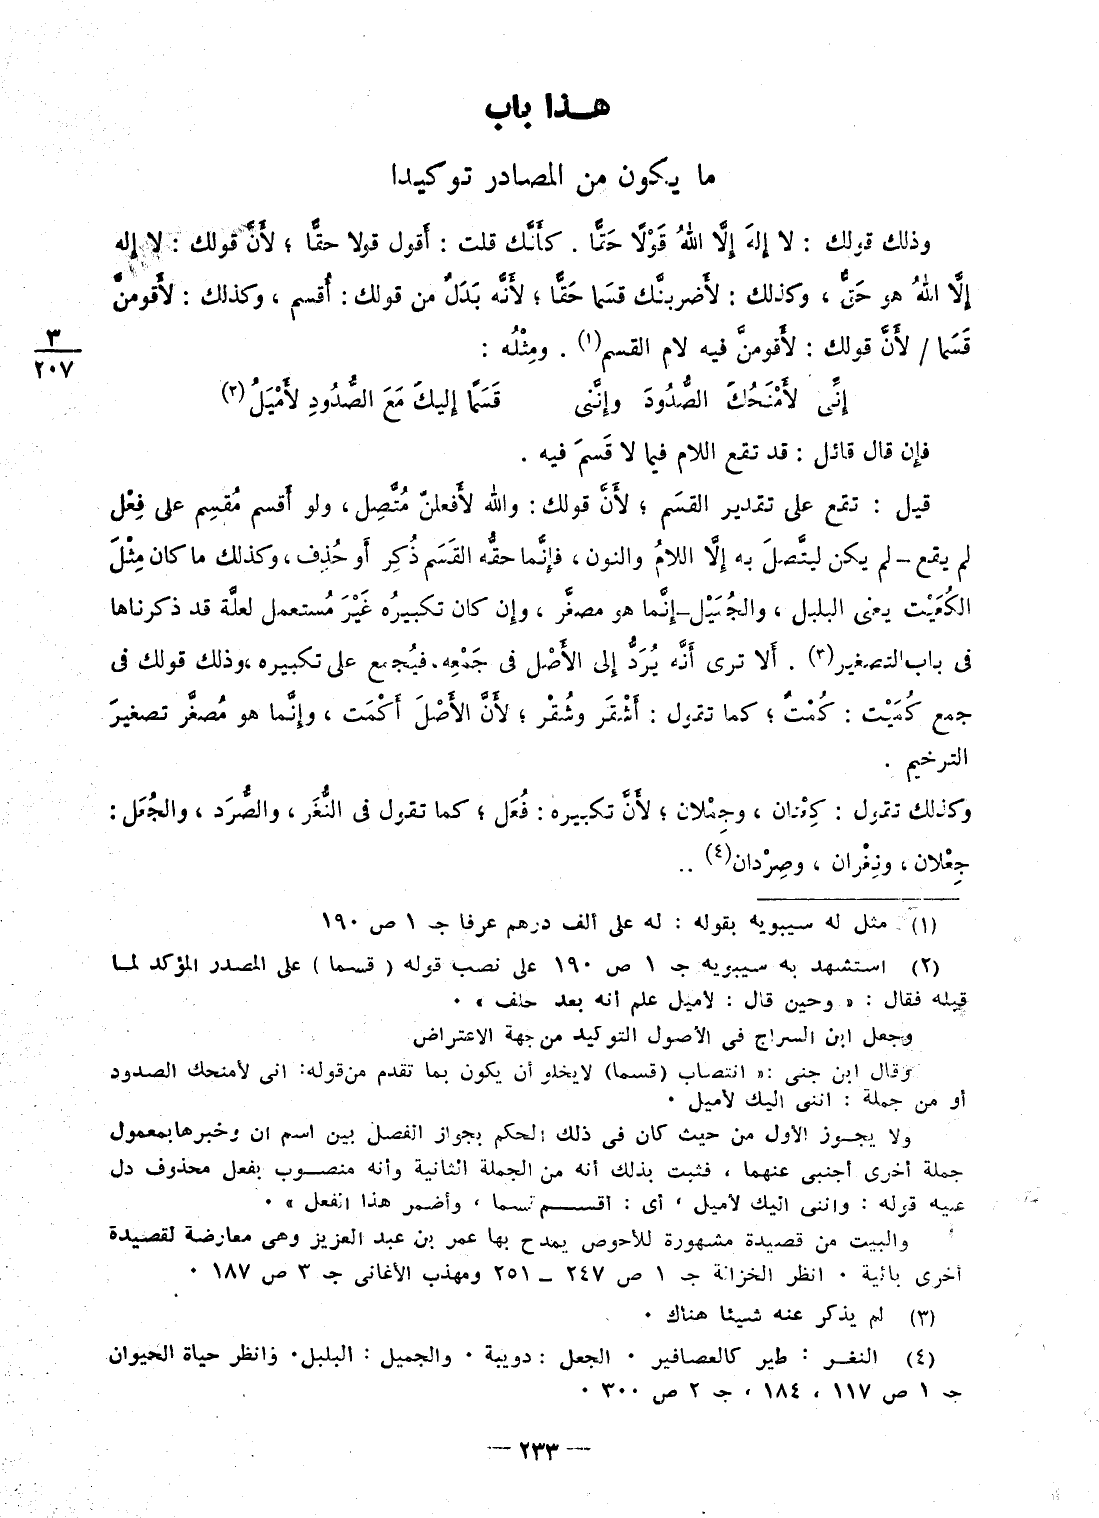 هـذا باب
ما يكون من المصادر توكيدا
وذلك قولك : لا إلهَ إلَّا اللهُ قَوْلًا حَقًّا . كأَنَّك قلت : أَقول قولا حقًّا ؛ لأَنَّ قولك : لا إله
إلَّا اللهُ هو حَقٌّ ، وكذلك : لأَضربنَّك قسَما حَقًّا ؛ لأَنَّه بَدَلٌ من قولك : أُقسم ، وكذلك : لأَقومنَّ
٣
٢٠٧
قَسَما / لأَنَّ قولك : لأَقومنَّ فيه لام القسم(١) . ومِثْلُه :
إنِّى لأَمْنَحُكَ الصُّدُودَ وإنَّنى قَسَمًا إليكَ مَعَ الصُّدُودِ لأَمْيَلُ(٢)
فإن قال قائل : قد تقع اللام فيما لا قَسَمَ فيه .
قيل : تقع على تقدير القسَم ؛ لأَنَّ قولك : والله لأَفعلنّ مُتَّصِل ، ولو أَقسم مُقسِم على فِعْل
لم يقع – لم يكن ليتَّصلَ به إلَّا اللامُ والنون ، فإنَّما حقُّه القَسَم ذُكِر أَو حُذِف ، وكذلك ما كان مِثْلَ
الكُعَيْت يعنى البلبل ، والجُمَيْل – إنَّما هو مصغَّر ، وإن كان تكبيرُه غَيْرَ مُستعمل لعلَّة قد ذكرناها
فى باب التصغير(٣) . أَلا ترى أَنَّه يُرَدُّ إلى الأَصْل فى جَمْعِه . فيُجمع على تكبيره ، وذلك قولك فى
جمع كُمَيْت : كُمْتٌ ؛ كما تقول : أَشْقَر وشُقْر ؛ لأَنَّ الأَصْلَ أَكْمَت ، وإنَّما هو مُصغَّر تصغيرَ
الترخيم .
وكذلك تقول : كِعْتان ، وجِمْلان ؛ لأَنَّ تكبيره : فُعَل ؛ كما تقول فى النُّغَر ، والصُّرَد ، والجُعَل :
جِعْلان ، ونِغْران ، وصِرْدان(٤) ..
(١) مثل له سيبويه بقوله : له على ألف درهم عرفا جـ ١ ص ١٩٠
(٢) استشهد به سيبويه جـ ١ ص ١٩٠ على نصب قوله ( قسما ) على المصدر المؤكد لما
قبله فقال : « وحين قال : لأميل علم أنه بعد حلف » .
وجعل ابن السراج فى الأصول التوكيد من جهة الاعتراض
وقال ابن جنى : « انتصاب (قسما) لا يخلو أن يكون بما تقدم من قوله : انى لأمنحك الصدود
أو من جملة : اننى اليك لأميل .
ولا يجـوز الأول من حيث كان فى ذلك الحكم بجواز الفصل بين اسم ان وخبرها بمعمول
جملة أخرى أجنبى عنهما ، فثبت بذلك أنه من الجملة الثانية وأنه منصـوب بفعل محذوف دل
عليه قوله : واننى اليك لأميل ، أى : أقسـم قسما ، وأضمر هذا الفعل » .
والبيت من قصيدة مشهورة للأحوص يمدح بها عمر بن عبد العزيز وهى معارضة لقصيدة
أخرى بائية . انظر الخزانة جـ ١ ص ٢٤٧ – ٢٥١ ومهذب الأغانى جـ ٣ ص ١٨٧ .
(٣) لم يذكر عنه شيئا هناك .
(٤) النغـر : طير كالعصافير . الجعل : دويبة . والجميل : البلبل . وانظر حياة الحيوان
جـ ١ ص ١١٧ ، ١٨٤ ، جـ ٢ ص ٣٠٠ .
— ٢٣٣ —